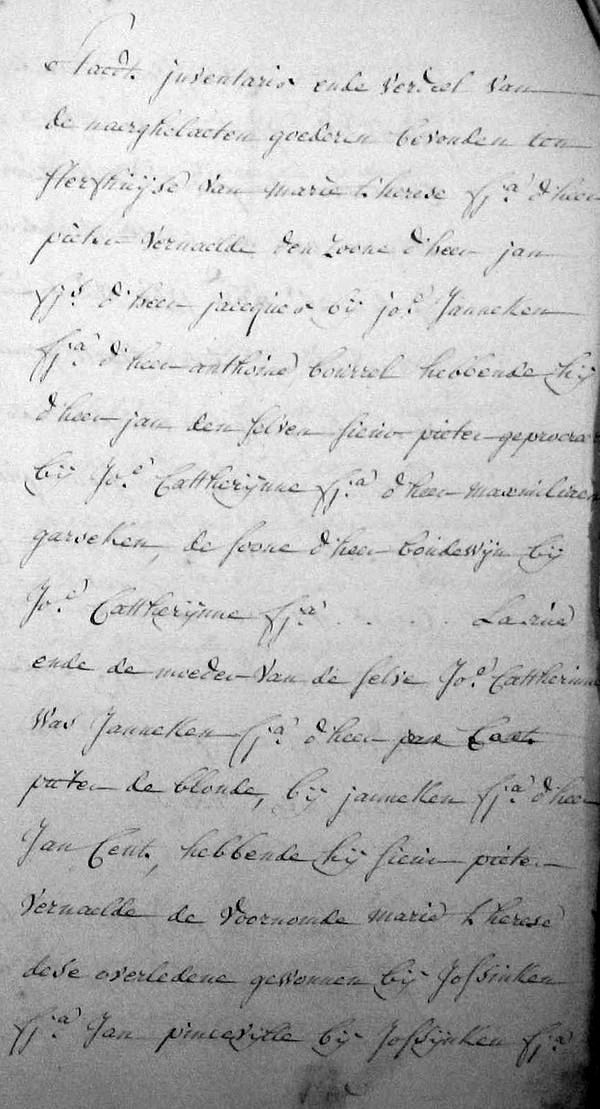 Staedt. inventaris ende verdeel van
de naerghelaeten goederen bevonden ten
sterfhuijse van marie therese fj.ª d'heer
pieter vernaelde den zoone d'heer jan
fj.s d'heer jacques bij jo.e Janneken
fj.ª d'heer anthoine bourrel hebbende hij
d'heer jan den selven sieur pieter geprocre
bij Jo.e Cattherijnne fj.ª d'heer maximiliaen
garveken, de soone d'heer boudewijn bij
Jo.e Cattherijnne fj.ª . . . . . La rue
ende de moeder van de selve Jo.e Cattherinne
was Janneken fj.ª d'heer jan Cent
pieter de blonde, bij janneken fj.ª d'heer
Jan Cent, hebbende hij sieur pieter
vernaelde de voornomde marie therese
dese overledene gewonnen bij Jossinken
fj.ª Jan bij Jossijnken fj.ª